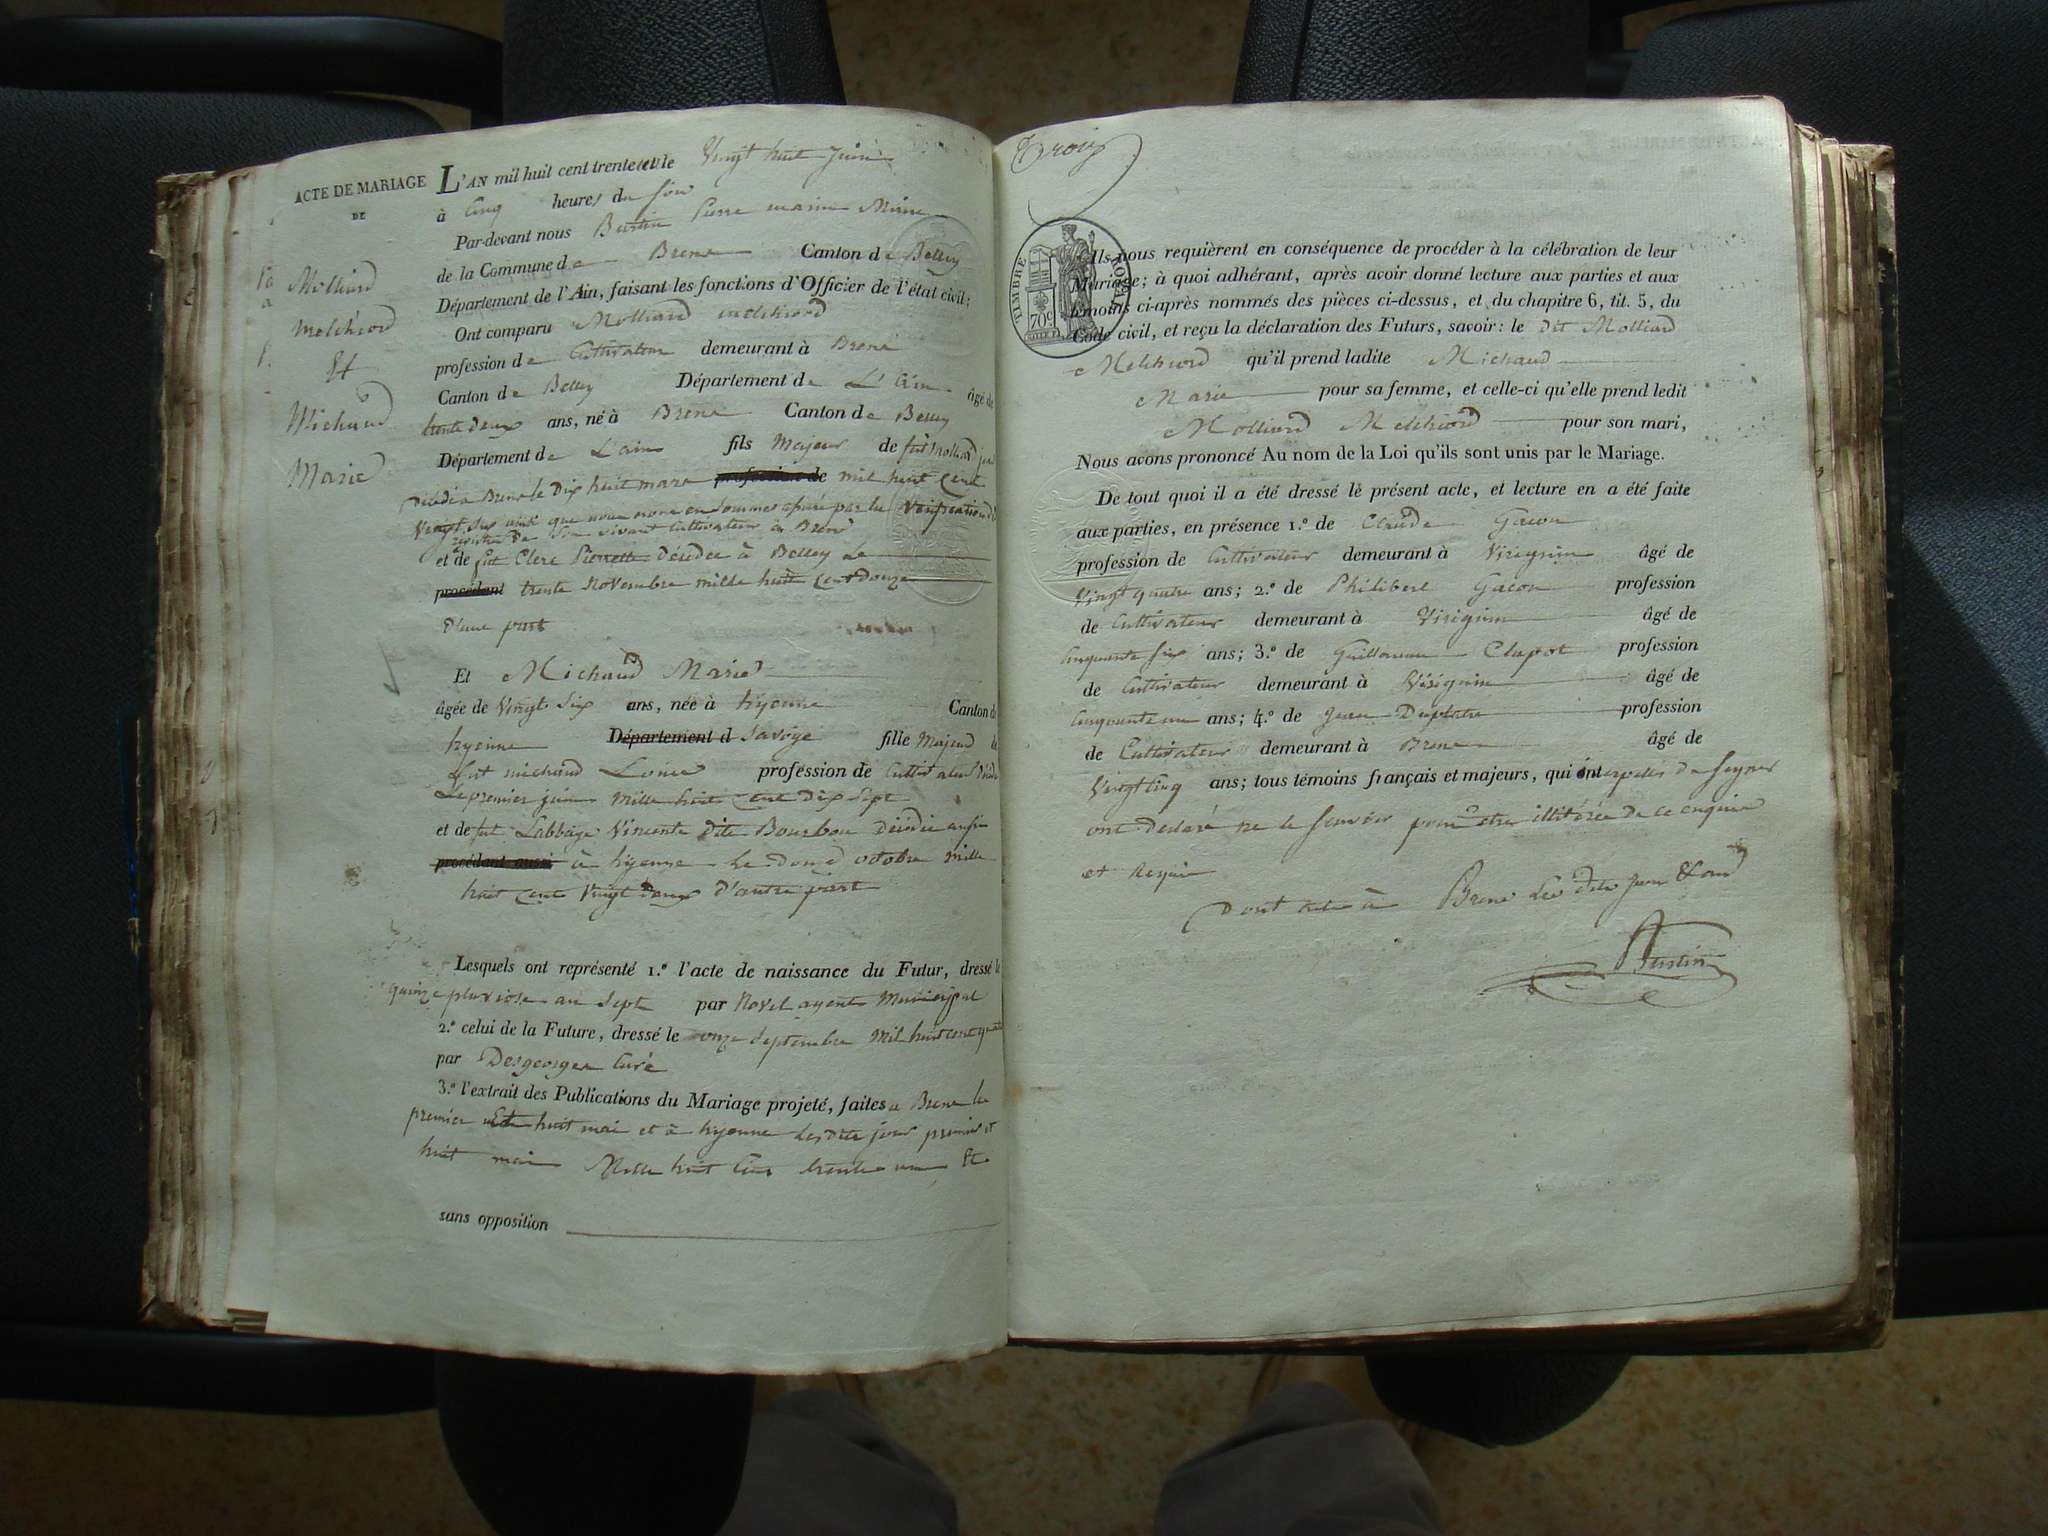 ACTE DE MARIAGE
DE
Molliard
Melchiord
Et
Michaud
Marie
L'AN mil huit cent trente et le Vingt huit Juin
à Cinq heures du soir
Par-devant nous Bustin Pierre marin Maire
de la Commune de Brens Canton de Belley
Département de l'Ain, faisant les fonctions d'Officier de l'état civil;
Ont comparu Molliard melchiord
profession de Cultivateur demeurant à Brens
Canton de Belley Département de L'Ain âgé de
trente deux ans, né à Brens Canton de Belley
Département de L'ain fils Majeur de fut Molliard
Décédé a Brens le Dix huit mars profession de mil huit Cent
Vingt six ainsi que nous nous en sommes assuré par la Vérification
registre de son vivant Cultivateur à Brens
et de fut Clerc Pierrette décédée à Belley Le
procédant trente Novembre mille huit Cent Douze
D'une part
Et Michaud Marie
âgée de Vingt Six ans, née à hyenne Canton de
hyenne Département d Savoye fille Majeur de
fut michaud Louis profession de Cultivateur
Le premier juin mille huit Cent Dix Sept
et de fut Labbaye Vincente Dite Bourbon Décédée aussi
procédant aussi à hyenne Le Douze octobre Mille
huit Cent Vingt Deux D'autre part
Lesquels ont représenté 1.º l'acte de naissance du Futur, dressé le
quinze pluviose an Sept par Novel agent Municipal
2.º celui de la Future, dressé le onze Septembre Mil huit cent quatre
par Desgeorges Curé
3.º l'extrait des Publications du Mariage projeté, faites a Brens les
premier et huit mai et à hyenne Lesdits jour premier et
huit mai Mille huit Cent trente un Et
sans opposition
Trois
TIMBRE ROYAL
70c
Ils nous requièrent en conséquence de procéder à la célébration de leur
Mariage; à quoi adhérant, après avoir donné lecture aux parties et aux
témoins ci-après nommés des pièces ci-dessus, et du chapitre 6, tit. 5, du
Code civil, et reçu la déclaration des Futurs, savoir: le dit Molliard
Melchiord qu'il prend ladite Michaud
Marie pour sa femme, et celle-ci qu'elle prend ledit
Molliard Melchiord pour son mari,
Nous avons prononcé Au nom de la Loi qu'ils sont unis par le Mariage.
De tout quoi il a été dressé le présent acte, et lecture en a été faite
aux parties, en présence 1.º de Claude Gacon
profession de Cultivateur demeurant à Virignin âgé de
Vingt quatre ans; 2.º de Philibert Gacon profession
de Cultivateur demeurant à Virignin âgé de
Cinquante six ans; 3.º de Guillaume Clapot profession
de Cultivateur demeurant à Virignin âgé de
Cinquante un ans; 4.º de Jean Duplatre profession
de Cultivateur demeurant à Brens âgé de
Vingt Cinq ans; tous témoins français et majeurs, qui interpellés de signer
ont déclaré ne le Savoir pour être illitérée de ce enquis
et Requis
Dont acte à Brens Les dits jour & an
Bustin